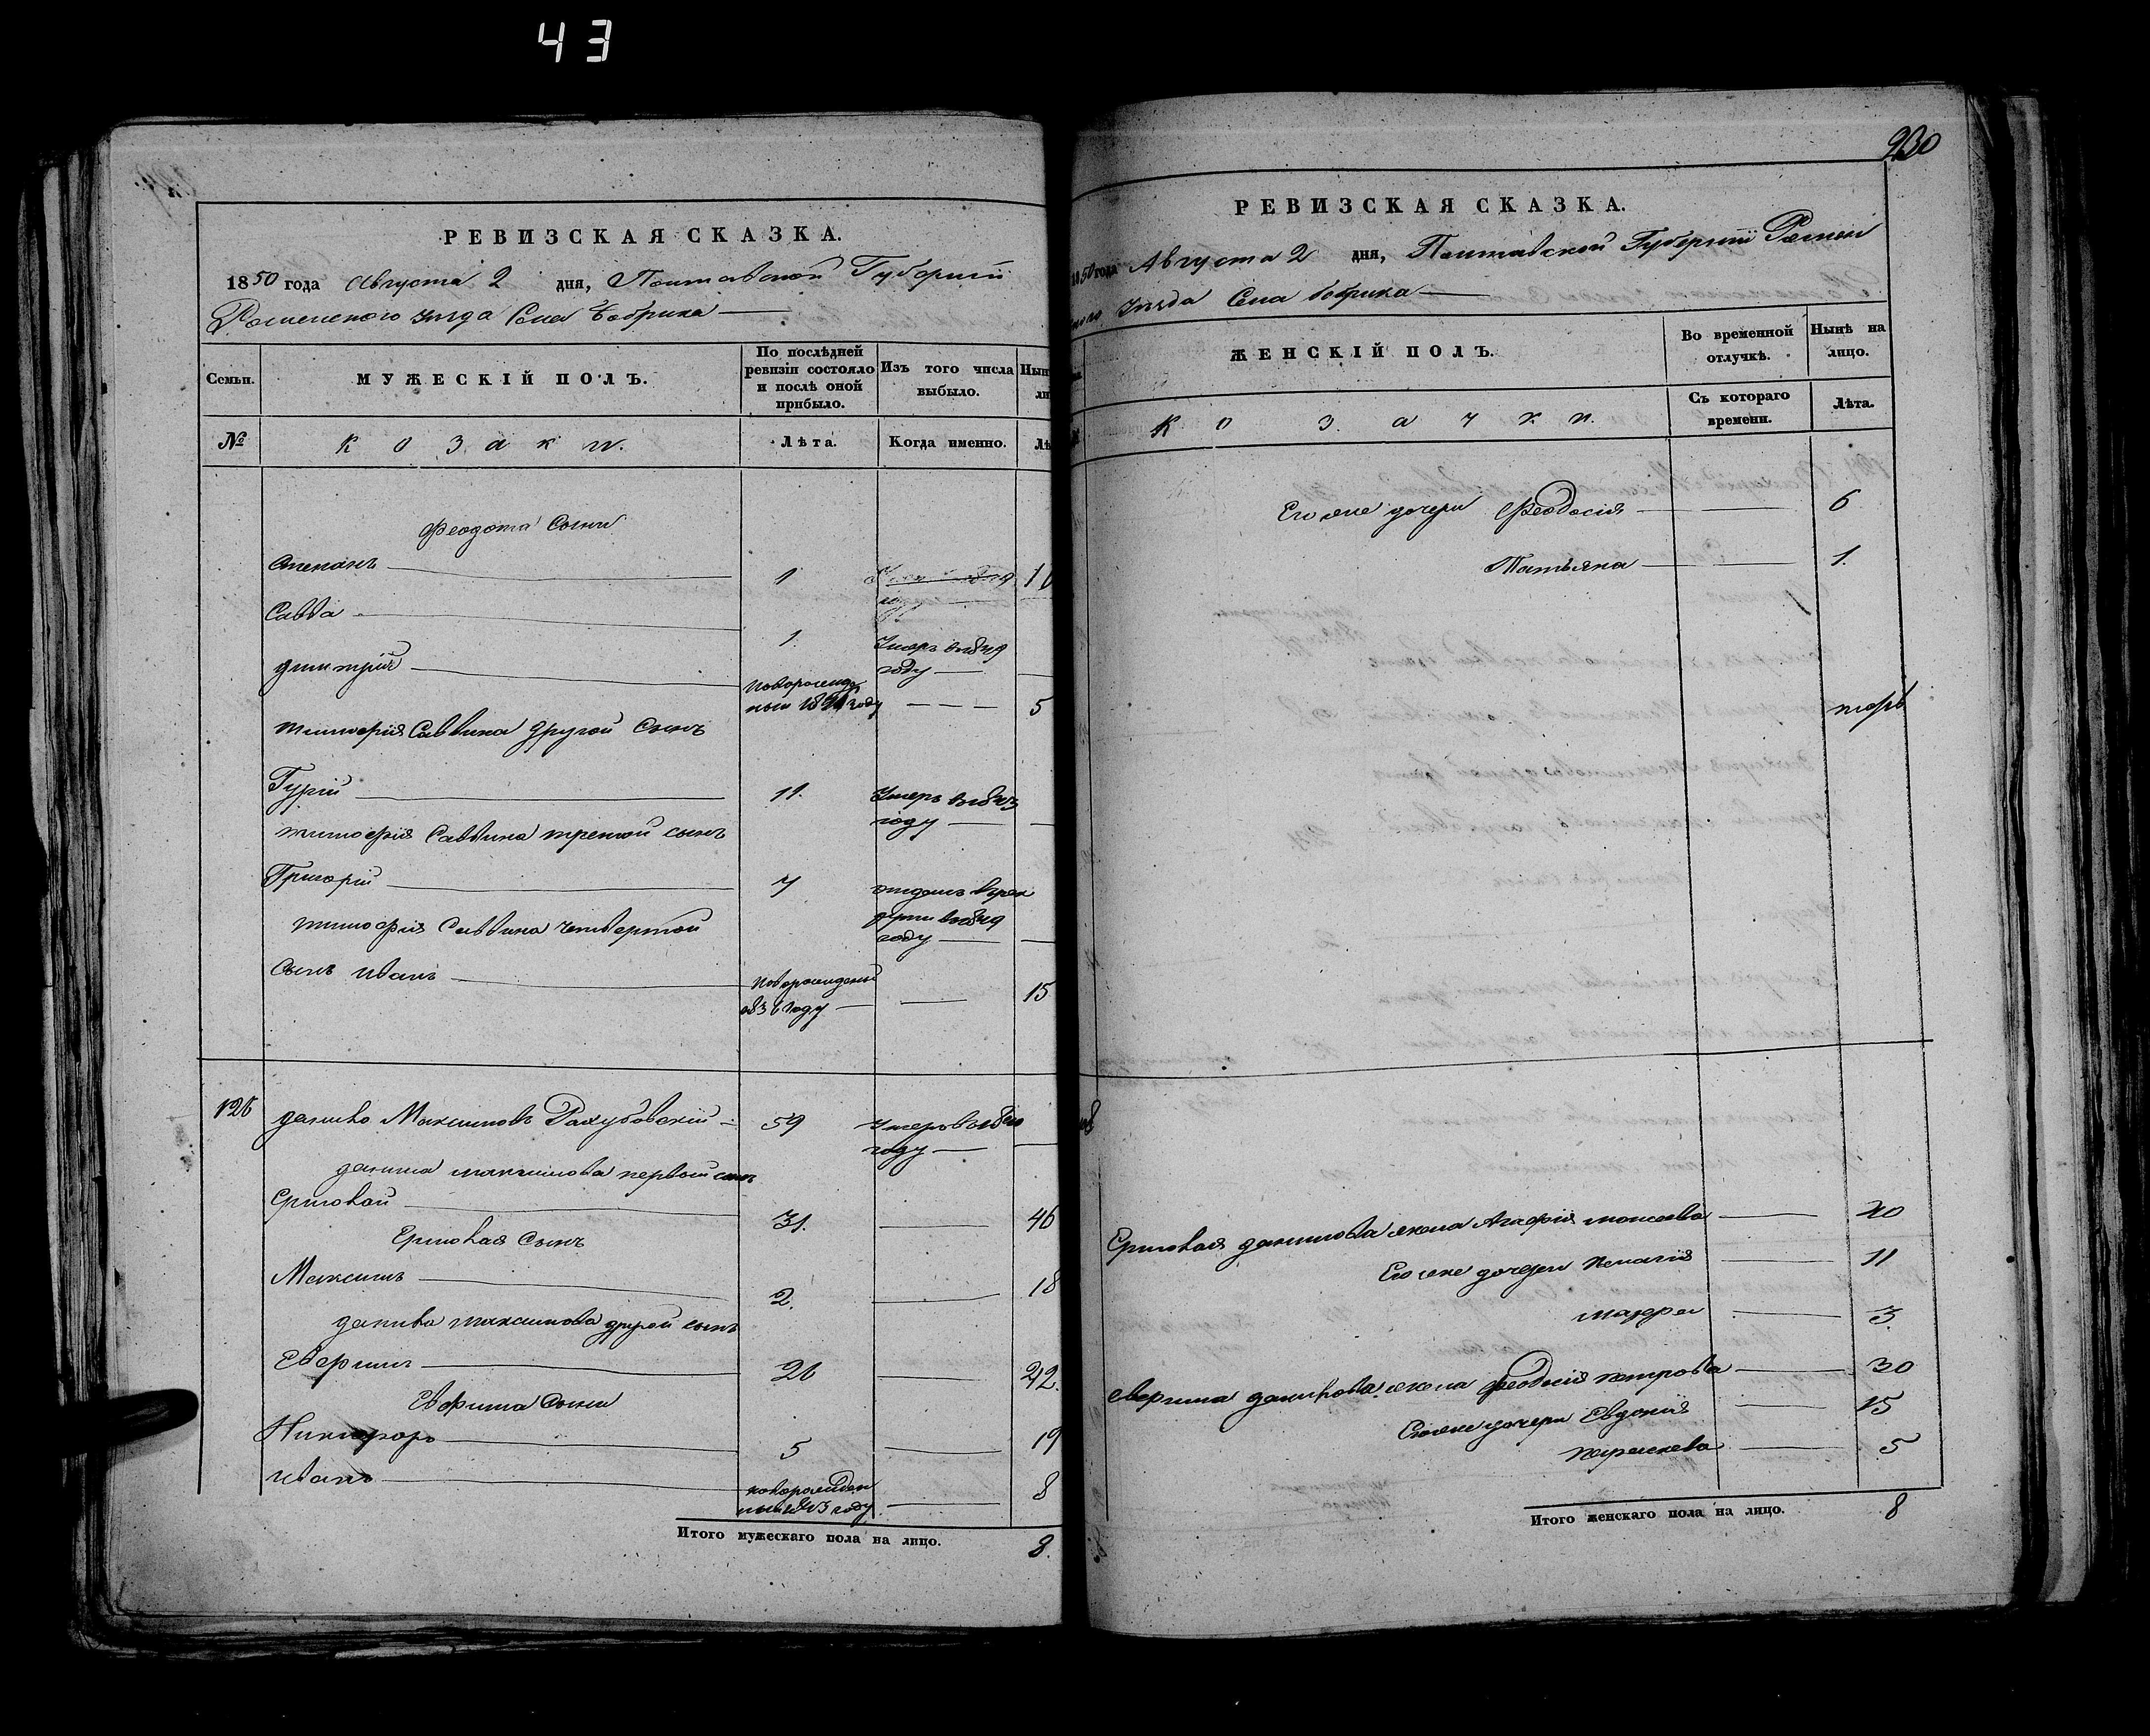 43
РЕВИЗСКАЯ СКАЗКА.
1850 года Августа 2 дня, Полтавской Губернии
Роменского уезда Села Бобрика
Семьи.
МУЖЕСКІЙ ПОЛЪ.
По послѣдней ревизіи состояло и послѣ оной прибыло.
Изъ того числа выбыло.
№
Козаки.
Лѣта.
Когда именно.
Феодота Сыни
Степанъ 1 10
Савва 1. Умеръ в 1849
году
Димитрій Новорожден
ный году 5
Тимофія Саввина другой Сынъ
Гурій 11. Умеръ в 1843
году
Тимофія Саввина третой сынъ
Григорій 7 отданъ врек
руты в 1849
году
Тимофія Саввина четвертой
Сынъ Иванъ Новорожденый
1836 году 15
126 Данило Максимовъ Рахубовскій 59 Умеръ
году
Данила Максимова первый сынъ
Ермолай 31. 46
Ермолая Сынъ
Максимъ 2. 18
Данила Максимова другой сынъ
Ефримъ 26 42.
Ефрима Сыни
Никифоръ 5 19
Иванъ новорожден
ный 1843 году 8
Итого мужескаго пола на лицо. 8.
230
РЕВИЗСКАЯ СКАЗКА.
1850 года Августа 2 дня, Полтавской Губерніи Ромен
ского уезда Села Бобрика
ЖЕНСКІЙ ПОЛЪ.
Во временной отлучкѣ.
Нынѣ на лицо.
Козачки.
Съ котораго времени.
Лѣта.
Его же дочери Феодосія 6
Татьяна 1.
Ермолая Данилова жена Агафія 40
Его же дочери Пелагія 11
Марфа 3
Ефрима Данилова жена Феодосія Петрова 30
Его же дочери Евдокія 15
Параскева 5
Итого женскаго пола на лицо. 8